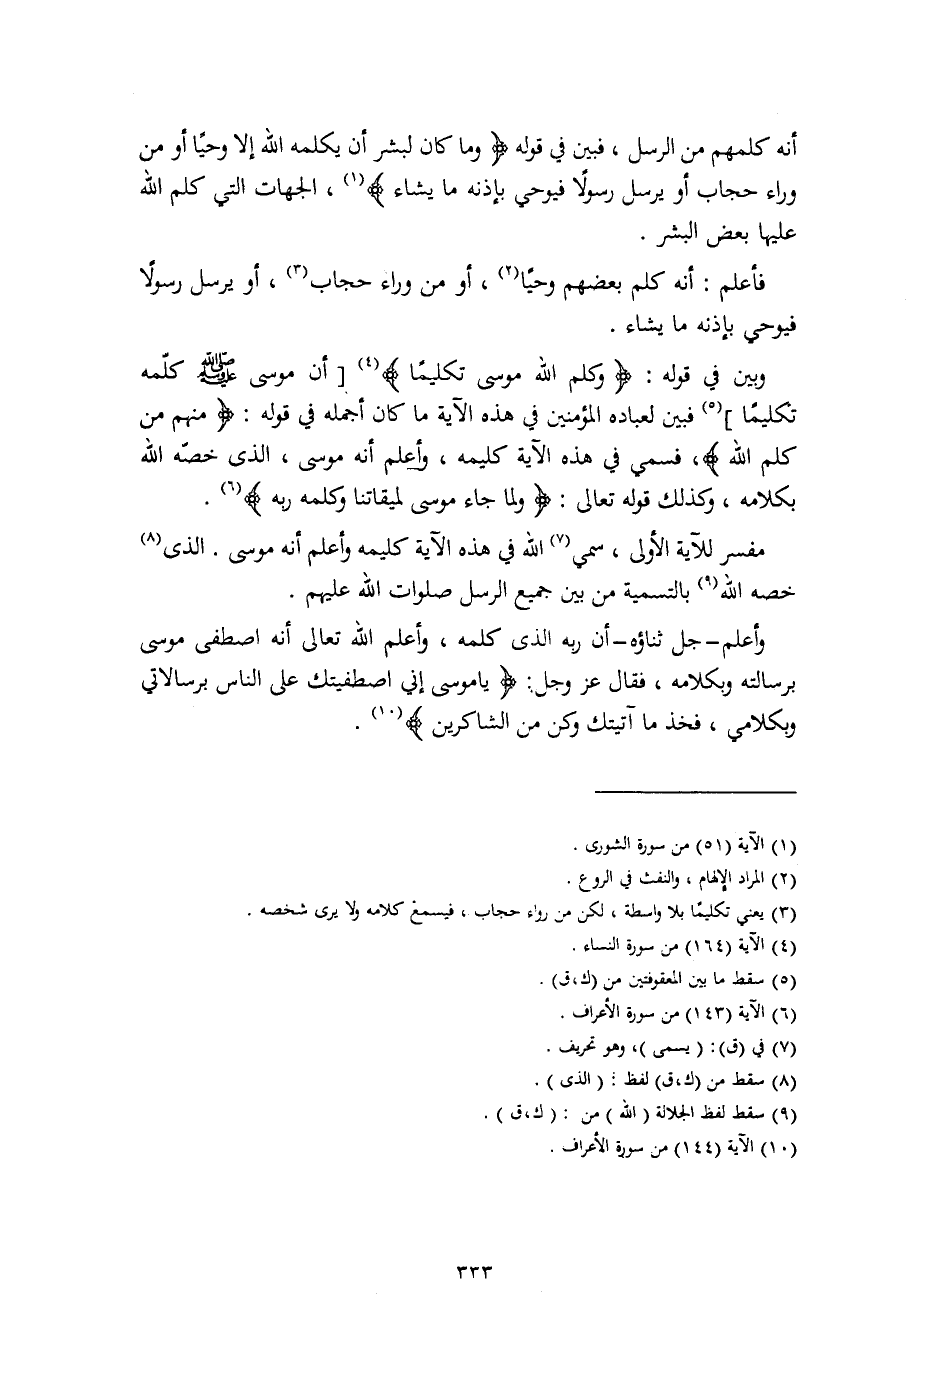 أنه كلمهم من الرسل ، فبين في قوله ﴿ وما كان لبشر أن يكلمه الله إلا وحيًا أو من
وراء حجاب أو يرسل رسولًا فيوحي بإذنه ما يشاء ﴾(١) ، الجهات التي كلم الله
عليها بعض البشر .
فأعلم : أنه كلم بعضهم وحيًا(٢) ، أو من وراء حجاب(٣) ، أو يرسل رسولًا
فيوحي بإذنه ما يشاء .
وبين في قوله : ﴿ وكلم الله موسى تكليمًا ﴾(٤) [ أن موسى ﷺ كلّمه
تكليمًا ](٥) فبين لعباده المؤمنين في هذه الآية ما كان أجمله في قوله : ﴿ منهم من
كلم الله ﴾، فسمي في هذه الآية كليمه ، وأعلم أنه موسى ، الذى خصّه الله
بكلامه ، وكذلك قوله تعالى : ﴿ ولما جاء موسى لميقاتنا وكلمه ربه ﴾(٦) .
مفسر للآية الأولى ، سمي(٧) الله في هذه الآية كليمه وأعلم أنه موسى . الذى(٨)
خصه الله(٩) بالتسمية من بين جميع الرسل صلوات الله عليهم .
وأعلم–جل ثناؤه–أن ربه الذى كلمه ، وأعلم الله تعالى أنه اصطفى موسى
برسالته وبكلامه ، فقال عز وجل: ﴿ ياموسى إني اصطفيتك على الناس برسالاتي
وبكلامي ، فخذ ما آتيتك وكن من الشاكرين ﴾(١٠) .
(١) الآية (٥١) من سورة الشورى .
(٢) المراد الإلهام ، والنفث في الروع .
(٣) يعني تكليمًا بلا واسطة ، لكن من رواء حجاب ، فيسمع كلامه ولا يرى شخصه .
(٤) الآية (١٦٤) من سورة النساء .
(٥) سقط ما بين المعقوفتين من (ك،ق) .
(٦) الآية (١٤٣) من سورة الأعراف .
(٧) في (ق): ( يسمى )، وهو تحريف .
(٨) سقط من (ك،ق) لفظ : ( الذى ) .
(٩) سقط لفظ الجلالة ( الله ) من : ( ك،ق ) .
(١٠) الآية (١٤٤) من سورة الأعراف .
٣٣٣